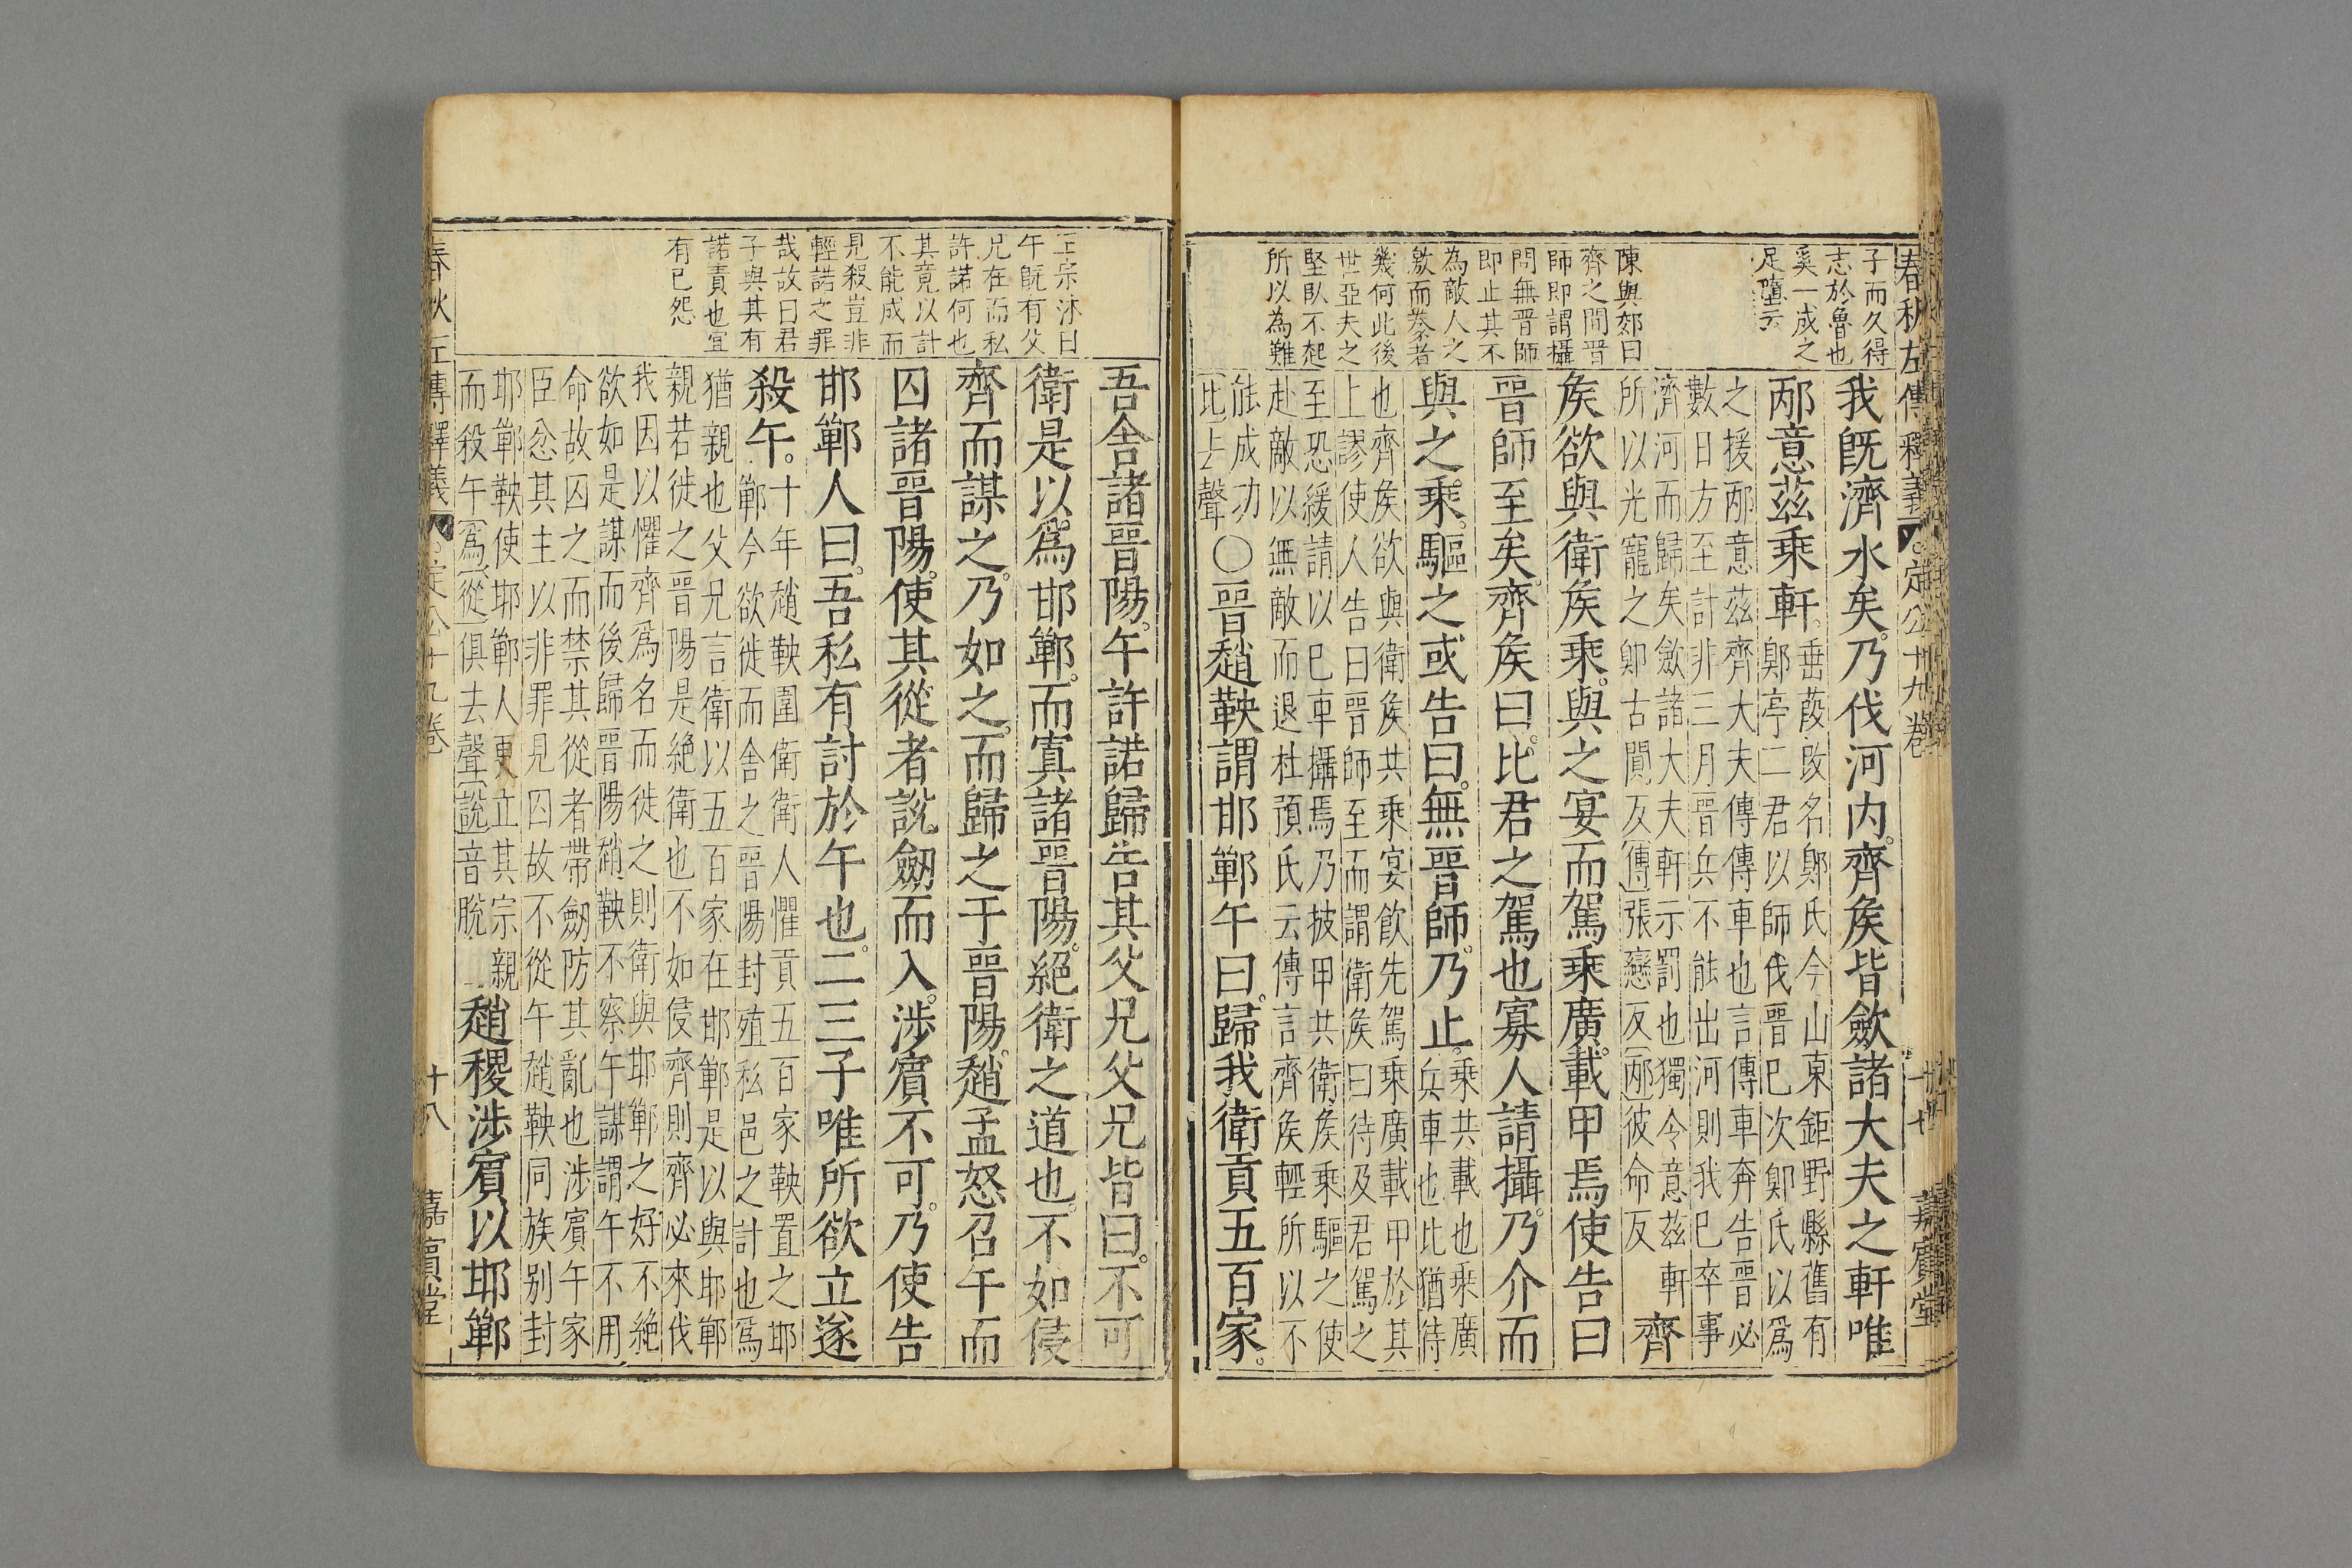 春秋左傳釋義
定公十九卷
十七
嘉賓堂
子而久得
志於魯也
奚一成之
足墮云
陳與郊曰
齊之間晉
師即謂攝
問無晉師
即止其不
為敵人之
歛而摯者
幾何此後
世亞夫之
堅臥不起
所以為難
我旣濟水矣乃伐河内齊矦皆歛諸大夫之軒唯
邴意茲乘軒
垂葭改名郹氏今山東鉅野縣舊有
郹亭二君以師伐晉巳次郹氏以爲
之援邴意茲齊大夫傳傳車也言傳車奔告晉必
數日方至計非三月晉兵不能出河則我巳卒事
濟河而歸矣歛諸大夫軒示罰也獨令意茲軒
所以光寵之郹古闃反傳張戀反邴彼命反
齊
矦欲與衛矦乘與之宴而駕乘廣載甲焉使告曰
晉師至矣齊矦曰比君之駕也寡人請攝乃介而
與之乘驅之或告曰無晉師乃止
乘共載也乘廣
兵車也比猶待
也齊矦欲與衛矦共乘宴飲先駕乘廣載甲於其
上謬使人告曰晉師至而謂衛矦曰待及君駕之
至恐緩請以巳車攝焉乃披甲共衛矦乘驅之使
赴敵以無敵而退杜預氏云傳言齊矦輕所以不
能成功
比上聲
○晉趙鞅謂邯鄲午曰歸我衛貢五百家
王宗沐曰
午旣有父
兄在而私
許諾何也
其竟以計
不能成而
見殺豈非
輕諾之罪
哉故曰君
子與其有
諾責也宜
有巳怨
吾舍諸晉陽午許諾歸告其父兄父兄皆曰不可
衛是以爲邯鄲而寘諸晉陽絕衛之道也不如侵
齊而謀之乃如之而歸之于晉陽趙孟怒召午而
囚諸晉陽使其從者說劒而入涉賓不可乃使告
邯鄲人曰吾私有討於午也二三子唯所欲立遂
殺午
十年趙鞅圍衛衛人懼貢五百家鞅置之邯
鄲今欲徙而舍之晉陽封殖私邑之計也爲
猶親也父兄言衛以五百家在邯鄲是以與邯鄲
親若徙之晉陽是絕衛也不如侵齊則齊必來伐
我因以懼齊爲名而徙之則衛與邯鄲之好不絕
欲如是謀而後歸晉陽趙鞅不察午謀謂午不用
命故囚之而禁其從者帶劒防其亂也涉賓午家
臣忿其主以非罪見囚故不從午趙鞅同族别封
邯鄲鞅使邯鄲人更立其宗親
而殺午爲從俱去聲說音脫
趙稷涉賓以邯鄲
春秋左傳釋義
定公十九卷
十八
嘉賓堂